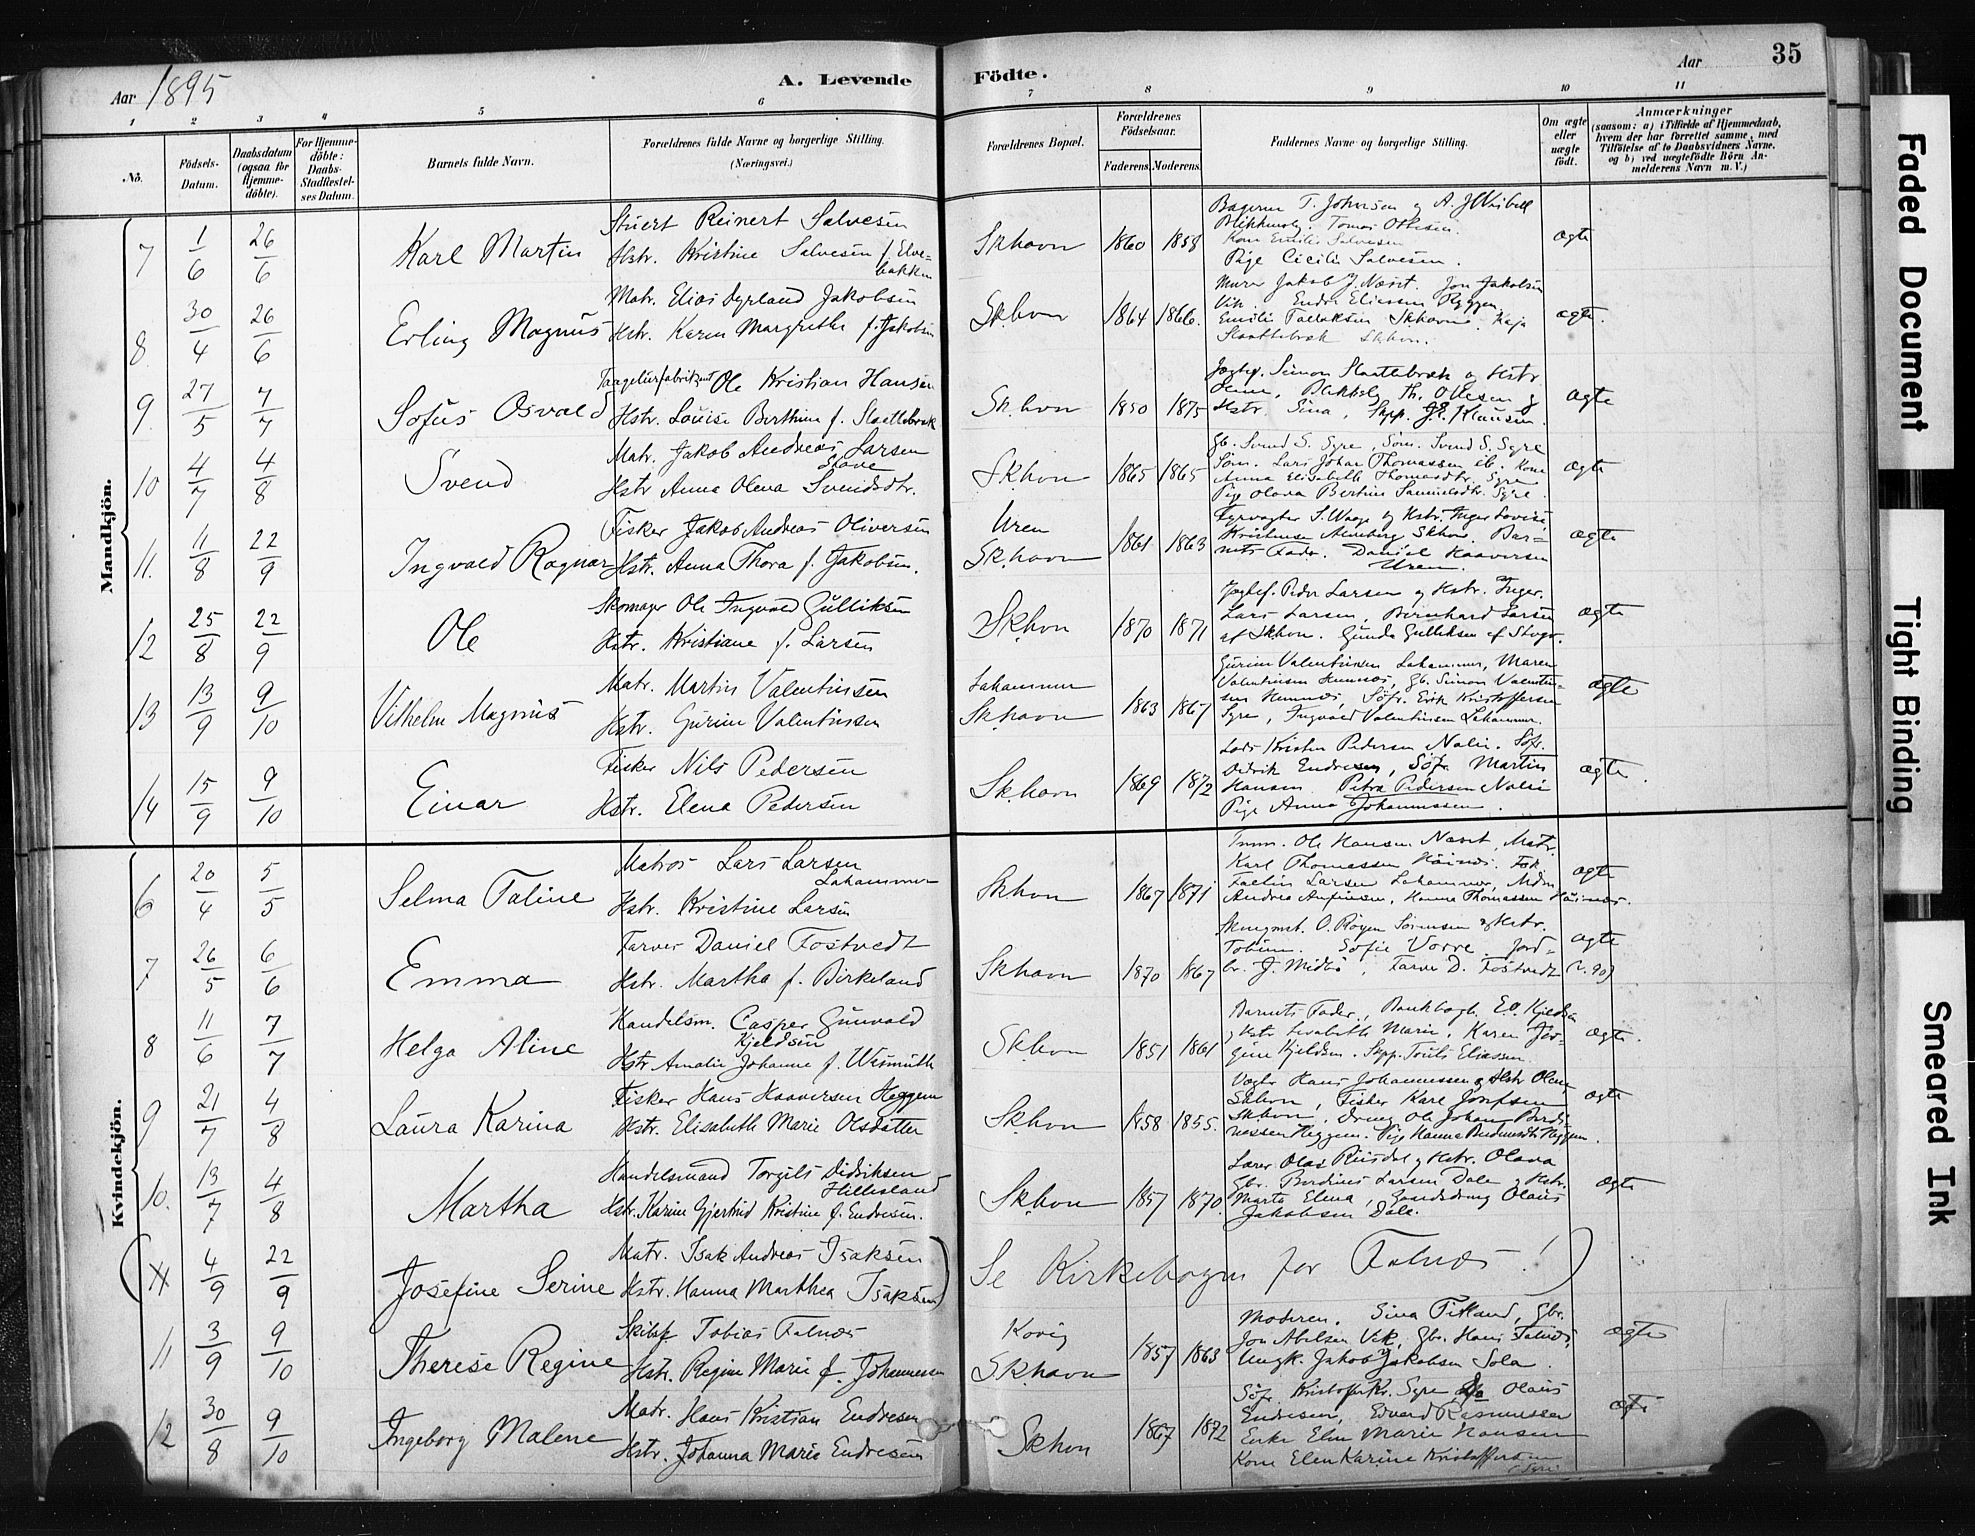 Aar 1895
A. Levende Födte.
Aar
35
1 2 3 4 5 6 7 8 9 10 11
No.
Födsels-Datum.
Daabsdatum (ogsaa for Hjemme-döbte).
For Hjemme-döbte: Daabs-Stadfæstel-ses Datum.
Barnets fulde Navn.
Forældrenes fulde Navne og borgerlige Stilling. (Næringsvei.)
Forældrenes Bopæl.
Forældrenes Födselsaar.
Faderens. Moderens.
Faddernes Navne og borgerlige Stilling.
Om ægte eller uægte födt.
Anmærkninger
(saasom: a) i Tilfælde af Hjemmedaab, hvem der har forrettet samme, med Tilföielse af to Daabsvidners Navne, og b) ved uægtefödte Börn An-melderens Navn m. V.)
Mandkjön.
7 1/6 26/6 Karl Martin
Stuert Reinert Salvesen
Hstr. Kristine Salvesen f. Elve-bakken
Skhavn 1860 1858
Pige Cicilie Salvesen.
ægte
8 30/4 26/6 Erling Magnus
Matr. Elias Dyrland Jakobsen
Hstr. Karen Margrethe f. Jakobsen
Sk.havn 1864 1866.
Murer Jakob J. Næset. Jon Jakobsen
Vik. Endre Eliassen Ryggen
Emilie Falleksen Skhavn. Kaja
Slaattebræk Skhvn.
ægte.
9. 27/5 7/7 Sofus Osvald
Taagelurfabrikant Ole Kristian Hansen
Hstr. Louise Berthine f. Slaattebræk
Sk.hvn 1850 1875
Simon Slaattebræk og Hstr.
Th. Ollesen og
Hstr. Sina, Skpp. J. E. Klausen.
ægte
10 4/7 4/8 Svend
Matr. Jakob Andreas Larsen
Stave
Hstr Anna Olena Svendsdtr.
Skhvn 1865 1865
Gb. Svend S. Syre, Söm. Svend S. Syre
Söm. Lars Johan Thomassen ib. Kone
Anna Elisabeth Thomasdtr. Syre
Pige Olava Bertine Samuelsdtr. Syre.
ægte
11. 11/8 22/9 Ingvald Ragnar
Fisker Jakob Andreas Oliversen
Hstr. Anna Thora f. Jakobsen.
Uren
Sk.havn 1861 1863
Fyrvogter S. Waage og Hstr. Inger Lovise,
Skhvn. Bar-
nets Fader. Daniel Haaversen
Uren.
ægte
12 25/8 22/9 Ole
Skomager Ole Ingvald Gulliksen
Hstr. Kristiane f. Larsen
Skhvn 1870 1871
Peder Larsen og Hstr. Inger.
Lars Larsen, Bernhard Larsen
af Skhvn. Gunda Gulliksen af
ægte
13 13/9 9/10 Vilhelm Magnus
Matr. Martin Valentinsen
Hstr. Gurine Valentinsen
Lahammer
Skhavn 1863 1867
Gurine Valentinsen Lahammer, Maren
Valentinsen Hemnæs, Gb. Simon Valentin-
sen Hemnæs, Söfr. Erik Kristoffersen
Syre, Ingvald Valentinsen Lahammer.
ægte
14 15/9 9/10 Einar
Fisker Nils Pedersen
Hstr. Elena Pedersen
Skhavn 1869 1872
Lods Kristen Pedersen Nalie. Söfr.
Didrik Endresen, Söfr. Martin
Hansen. Petra Pedersen Nalie
Pige Anna Johannessen.
ægte.
Kvindekjön.
6 20/4 5/5 Selma Taline
Matros Lars Larsen
Lahammer
Hstr. Kristine Larsen
Skhvn 1867 1871
Tmm. Ole Hansen Næset, Matr.
Karl Thomassen Höinæs.
Larsen Lahammer, Mdm
Andrea Anfinsen, Hanna Thomassen Höinæs.
ægte
7 26/5 6/6 Emma
Farver Daniel Fostvedt
Hstr. Martha f. Birkeland
Skhavn 1870 1867
O. Röyen Sörensen og Hstr.
Tobine. Sofie Vorre Jord-
br. J. Midbö, Farver D. Fostvedt
ægte
8 11/6 7/7 Helga Aline
Handelsm. Casper Gunvald
Kjeldsen
Hstr Amalie Johanne f. Wesmuth
Sk.hvn 1851 1861
Barnets Fader, Bankbogh. E. Kjeldsen
og Hstr Lisabeth Marie, Karen Jör-
gine Kjeldsen. Skpp. Touls Eliassen
ægte.
9 21/7 4/8 Laura Karina
Fisker Hans Haaversen Heggem
Hstr. Elisabeth Marie Olsdatter
Sk.hvn 1858 1855.
Vægter Hans Johannessen og Hstr Olene
Skhvn, Fisker Karl Josefsen
Skhvn, Dreng Ole Johan Berdi-
nessen Heggem. Pige Hanna Heggem.
ægte
10. 13/7 4/8 Martha
Handelsmand Torgils Didriksen
Hillesland
Hstr. Karine Gjertrud Kristine f. Endresen.
Sk.hvn 1857 1870.
Lærer Olai Riisdal og Hstr. Olava
Gbr. Berdines Larsen Dale og Hstr.
Marta Elena, Gaardsdreng Olaus
Jakobsen Dale.
ægte
(11 4/9 22/9 Josefine Serine
Matr. Isak Andreas Isaksen
Hstr. Hanna Marthea Isaksen)
Se Kirkebogen for Falnæs!)
11 3/9 9/10 Therese Regine
Skibsf Tobias Falnæs
Hstr. Regine Marie f. Johannessen
Kovig
Skhavn 1857 1863
Moderen. Sina Fitland, Gbr.
Jon Abelsen Vik, Gbr. Hans Falnæs,
Ungk. Jakob Jakobsen Sola.
ægte
12 30/8 9/10 Ingeborg Malene
Matr. Hans Kristian Endresen
Hstr. Johanna Marie Endresen
Skhvn 1867 1872
Söfr Kristoffer Kr. Syre Olaus
Endresen, Edvard Rasmussen
Enke Elen Marie Hansen
Kone Elen Karine Kristoffersen
Syre
ægte
Faded Document
Tight Binding
Smeared Ink